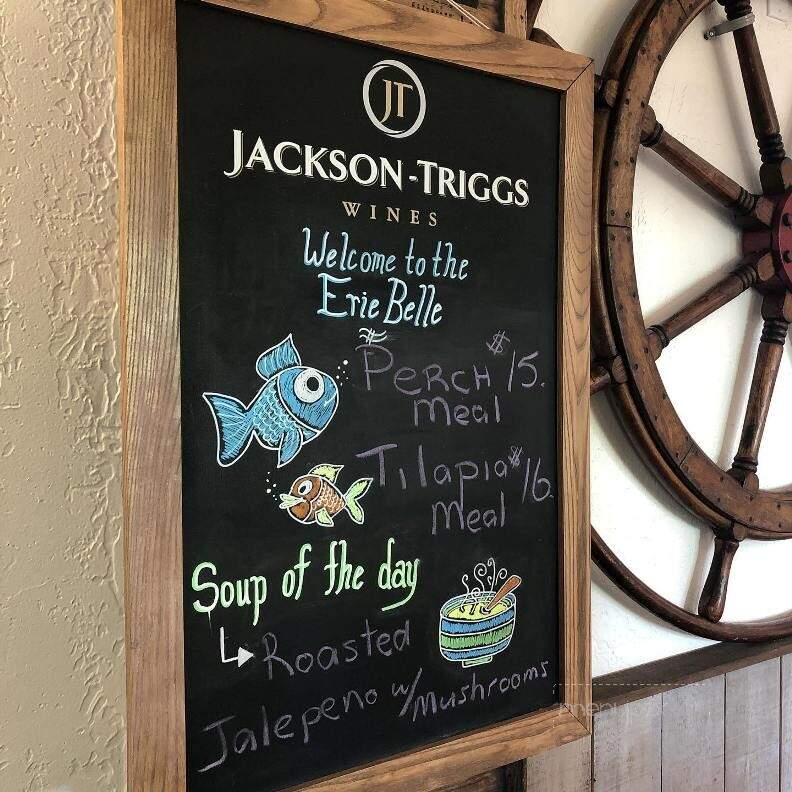 JT
JACKSON-TRIGGS
WINES
Welcome to the
Erie Belle
PERCH $15.
Meal
Tilapia $16.
Meal
Soup of the day
Roasted
Jalepeno w/ Mushrooms